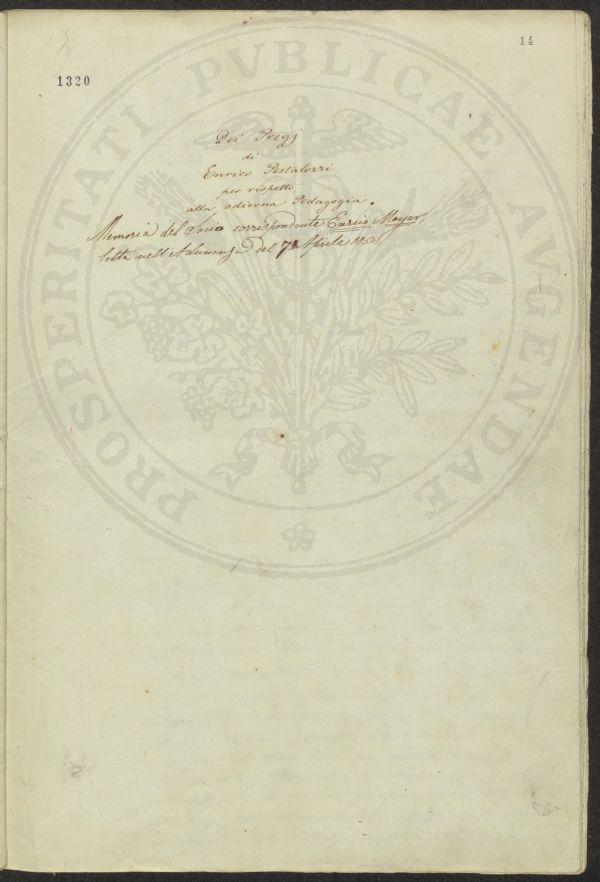 14
1320
Dei Pregj
di
Enrico Pestalozzi
per rispetto
alla odierna Pedagogia.
Memoria del Socio corrispondente Enrico Mayer
letta nell'Adunanza del 7 Aprile
PROSPERITATI PVBLICAE AVGENDAE